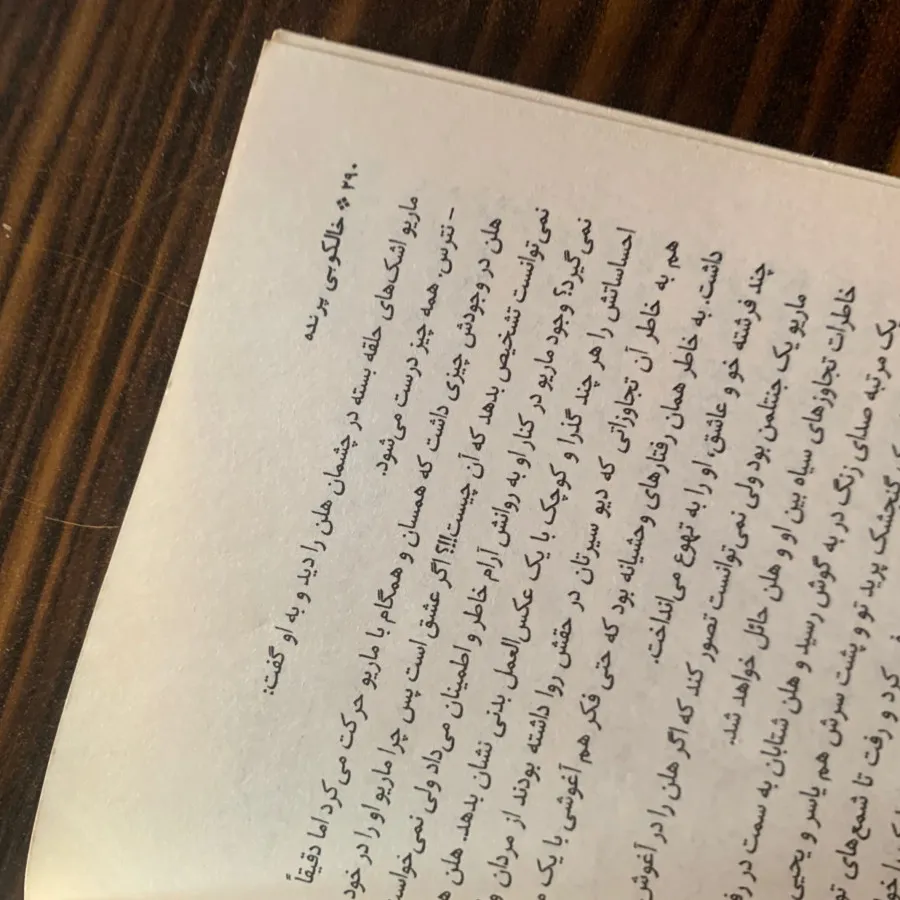 ۲۹۰ * خالکوبی پرنده
ماریو اشک‌های حلقه بسته در چشمان هلن را دید و به او گفت:
- نترس. همه چیز درست می‌شود.
هلن در وجودش چیزی داشت که همسان و همگام با ماریو حرکت می‌کرد اما دقیقاً
نمی‌توانست تشخیص بدهد که آن چیست!!!؟ اگر عشق است پس چرا ماریو او را در خود
نمی‌گیرد؟ وجود ماریو در کنار او به روانش آرام خاطر و اطمینان می‌داد ولی نمی‌خواست
احساساتش را هر چند گذرا و کوچک با یک عکس‌العمل بدنی نشان بدهد. هلن
هم به خاطر آن تجاوزاتی که دیو سیرتان در حقش روا داشته بودند از مردان
داشت. به خاطر همان رفتارهای وحشیانه بود که حتی فکر هم آغوشی با یک
چند فرشته خو و عاشق، او را به تهوع می‌انداخت.
ماریو یک جنتلمن بود ولی نمی‌توانست تصور کند که اگر هلن را در آغوش
خاطرات تجاوزهای سیاه بین او و هلن حائل خواهد شد.
یک مرتبه صدای زنگ در به گوش رسید و هلن شتابان به سمت در
گنجشک پرید تو و پشت سرش هم یاسر و یحیی
کرد و رفت تا شمع‌های